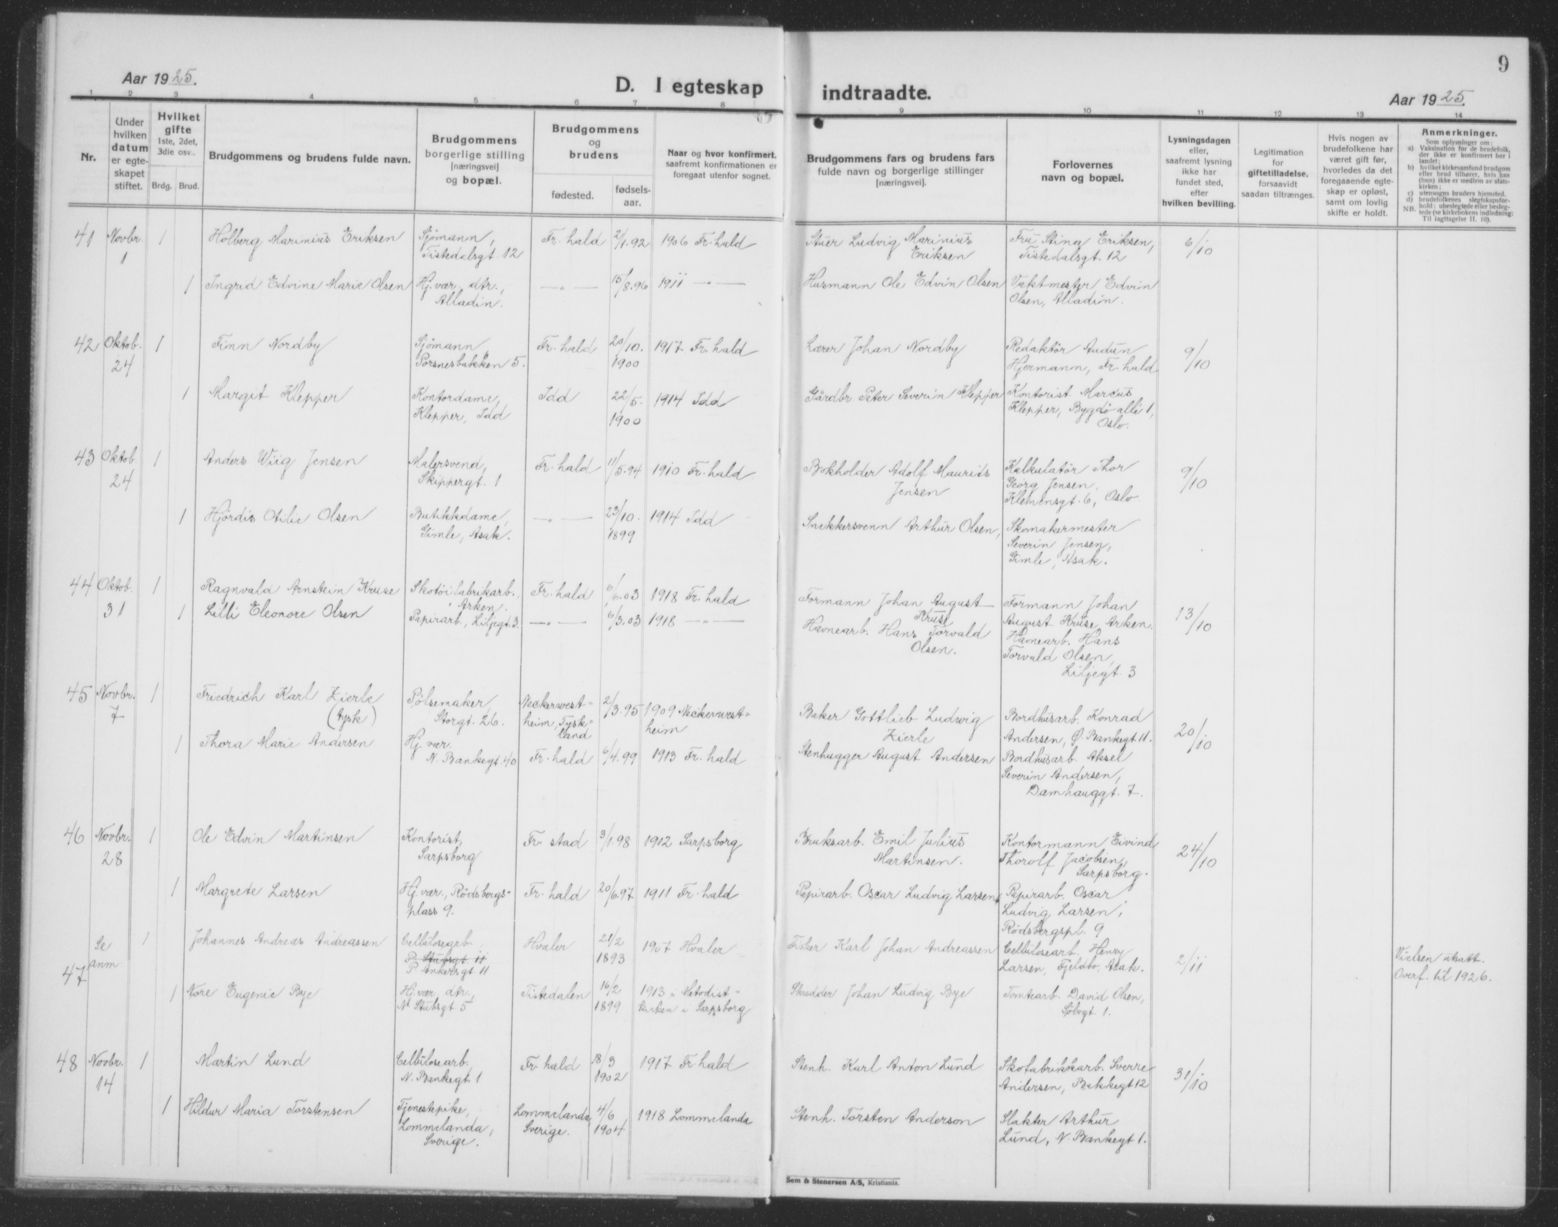 9
Aar 1925.
D. I egteskap indtraadte.
Aar 1925.
1 2 3 4 5 6 7 8 9 10 11 12 13 14
Nr.
Under hvilken datum er egteskapet stiftet.
Hvilket gifte
1ste, 2det, 3die osv..
Brdg. Brud.
Brudgommens og brudens fulde navn.
Brudgommens borgerlige stilling [næringsvei] og bopæl.
Brudgommens og brudens
fødested.
fødsels-aar.
Naar og hvor konfirmert.
saafremt konfirmationen er foregaat utenfor sognet.
Brudgommens fars og brudens fars fulde navn og borgerlige stillinger [næringsvei].
Forlovernes navn og bopæl.
Lysningsdagen eller, saafremt lysning ikke har fundet sted, efter hvilken bevilling.
Legitimation for giftetilladelse, forsaavidt saadan tiltrænges.
Hvis nogen av brudefolkene har været gift før, hvorledes da det foregaaende egteskap er opløst, samt om lovlig skifte er holdt.
Anmerkninger.
41 Novbr. 1 1 Holberg Marinius Eriksen Sjømann, Tistedalsgt. 12 Fr.hald 2/1.92 1906 Fr.hald Stuer Ludvig Marinius Eriksen Fru Stina Eriksen, Tistedalsgt. 12 6/10
1 Ingrid Edvine Marie Olsen Hj.vær. dtr., Alladin. —"— 15/8.96 1911 —"— Husmann Ole Edvin Olsen Vaktmester Edvin Olsen, Alladin.
42 Oktob. 24 1 Finn Nordby Sjømann Porsnesbakken 5. Fr.hald 20/10. 1900 1917 Fr.hald Lærer Johan Nordby Redaktør Audun Hjermann, Fr.hald 9/10
1 Margit Klepper Kontordame, Klepper, Idd Idd 22/5. 1900 1914 Idd Gårdbr. Peter Severin Klepper Kontorist Marcus Klepper, Bygdø allé 1, Oslo.
43 Oktob. 24 1 Anders Wiig Jensen Malersvend, Skippergt. 1 Fr.hald 11/5.94 1910 Fr.hald Bokholder Adolf Mauritz Jensen Kalkulatør Thor Georg Jensen, Klemensgt. 6, Oslo 9/10
1 Hjørdis Otilie Olsen Butikkdame, Gimle, Asak. —"— 23/10. 1899 1914 Idd Snekkersvenn Arthur Olsen, Skomakermester Severin Jensen, Gimle, Asak.
44 Oktob. 31 1 Ragnvald Arnstein Kruse Skotøifabrikarb., Arken. Fr.hald 1918 Fr.hald Formann Johan August Kruse Formann Johan August Kruse, Arken. 13/10
1 Lilli Eleonore Olsen Papirarb., Liljegt. 3. —"— 6/3.03 1918 —"— Havnearb. Hans Torvald Olsen. Havnearb. Hans Torvald Olsen, Liljegt. 3
45 Novbr. 7 1 Friedrich Karl Zierle (tysk) Pølsemaker, Storgt. 26. Neckarwestheim, Tyskland 2/3.95 1909 Neckerwestheim Baker Gottlieb Ludwig Zierle Bordhusarb. Konrad Andersen, Ø. Bankegt. 11. 20/10
1 Thora Marie Andersen Hj.vær. N. Bankegt. 40 Fr.hald 6/4.99 1913 Fr.hald Stenhugger August Andersen Bordhusarb. Aksel Severin Andersen, Damhauggt. 7.
46 Novbr. 28 1 Ole Edvin Martinsen Kontorist, Sarpsborg Fr.stad 3/1.98 1912 Sarpsborg Bruksarb. Emil Julius Martinsen. Kontormann Eivind Thorolf Jacobsen, Sarpsborg. 24/10
1 Margrete Larsen Hj.vær., Rødsbergsplass 9. Fr.hald 20/6.97 1911 Fr.hald Papirarb. Oscar Ludvig Larsen, Papirarb. Oscar Ludvig Larsen, Rødsbergspl. 9
47 Se anm 1 Johannes Andreas Andreassen Ankersgt 11 Hvaler 21/2 1893 1907 Hvaler Fisker Karl Johan Andreassen Cellulosearb. Henry Larsen, Asak. 2/11 Overf. til 1926.
1 Nore Eugenie Bye Hj.vær. dtr., N. Stubsgt 5 Tistedalen 16/2 1899 1913 i Metodistkirken i Sarpsborg Skredder Johan Ludvig Bye Tomtearb. David Olsen, 1.
48 Novbr. 14 1 Martin Lund Cellulosearb. N. Bankegt 1 Fr.hald 18/3 1902 1917 Fr.hald Stenh. Karl Anton Lund Skofabrikkarb. Sverre Andersen, Bakkegt 12 31/10
1 Hildur Maria Torstensen Tjenestepike, Lommelanda, Sverige. Lommelanda Sverige. 4/6 1904 1918 Lommelanda Stenh. Torsten Anderson Slakter Arthur Lund, N. Bankegt 1.
Sem & Stenersen A/S, Kristiania.